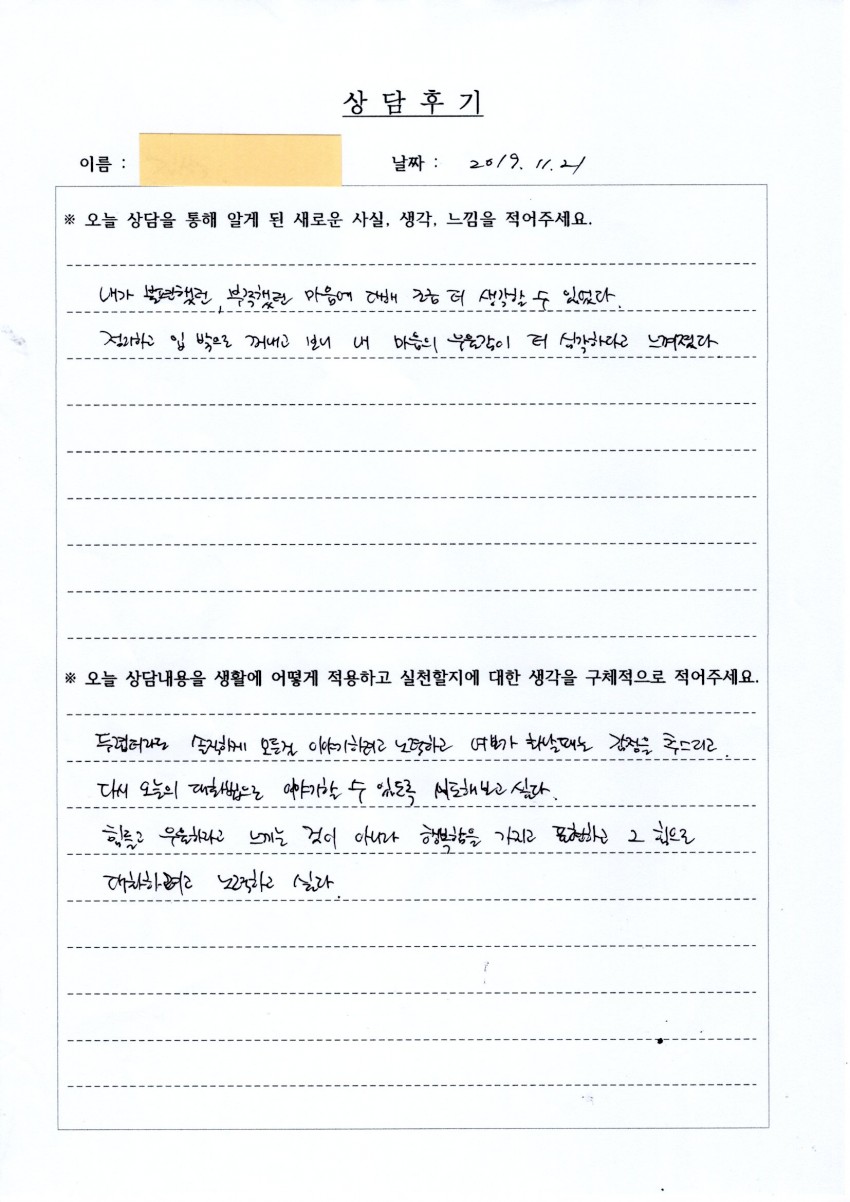 상 담 후 기
이름 :
날짜 : 2019. 11. 21
※ 오늘 상담을 통해 알게 된 새로운 사실, 생각, 느낌을 적어주세요.
내가 불편했던, 부족했던 마음에 대해 조금 더 생각할 수 있었다.
정리하고 입 밖으로 꺼내고 보니 내 마음의 우울감이 더 심각하다고 느껴졌다
※ 오늘 상담내용을 생활에 어떻게 적용하고 실천할지에 대한 생각을 구체적으로 적어주세요.
두렵더라도 솔직하게 모든걸 이야기하려고 노력하고 여보가 화날때는 감정을 추스리고
다시 오늘의 대화법으로 이야기할 수 있도록 시도해보고 싶다.
힘들고 우울하다고 느끼는 것이 아니라 행복함을 가지고 표현하고 그 힘으로
대화하려고 노력하고 싶다.